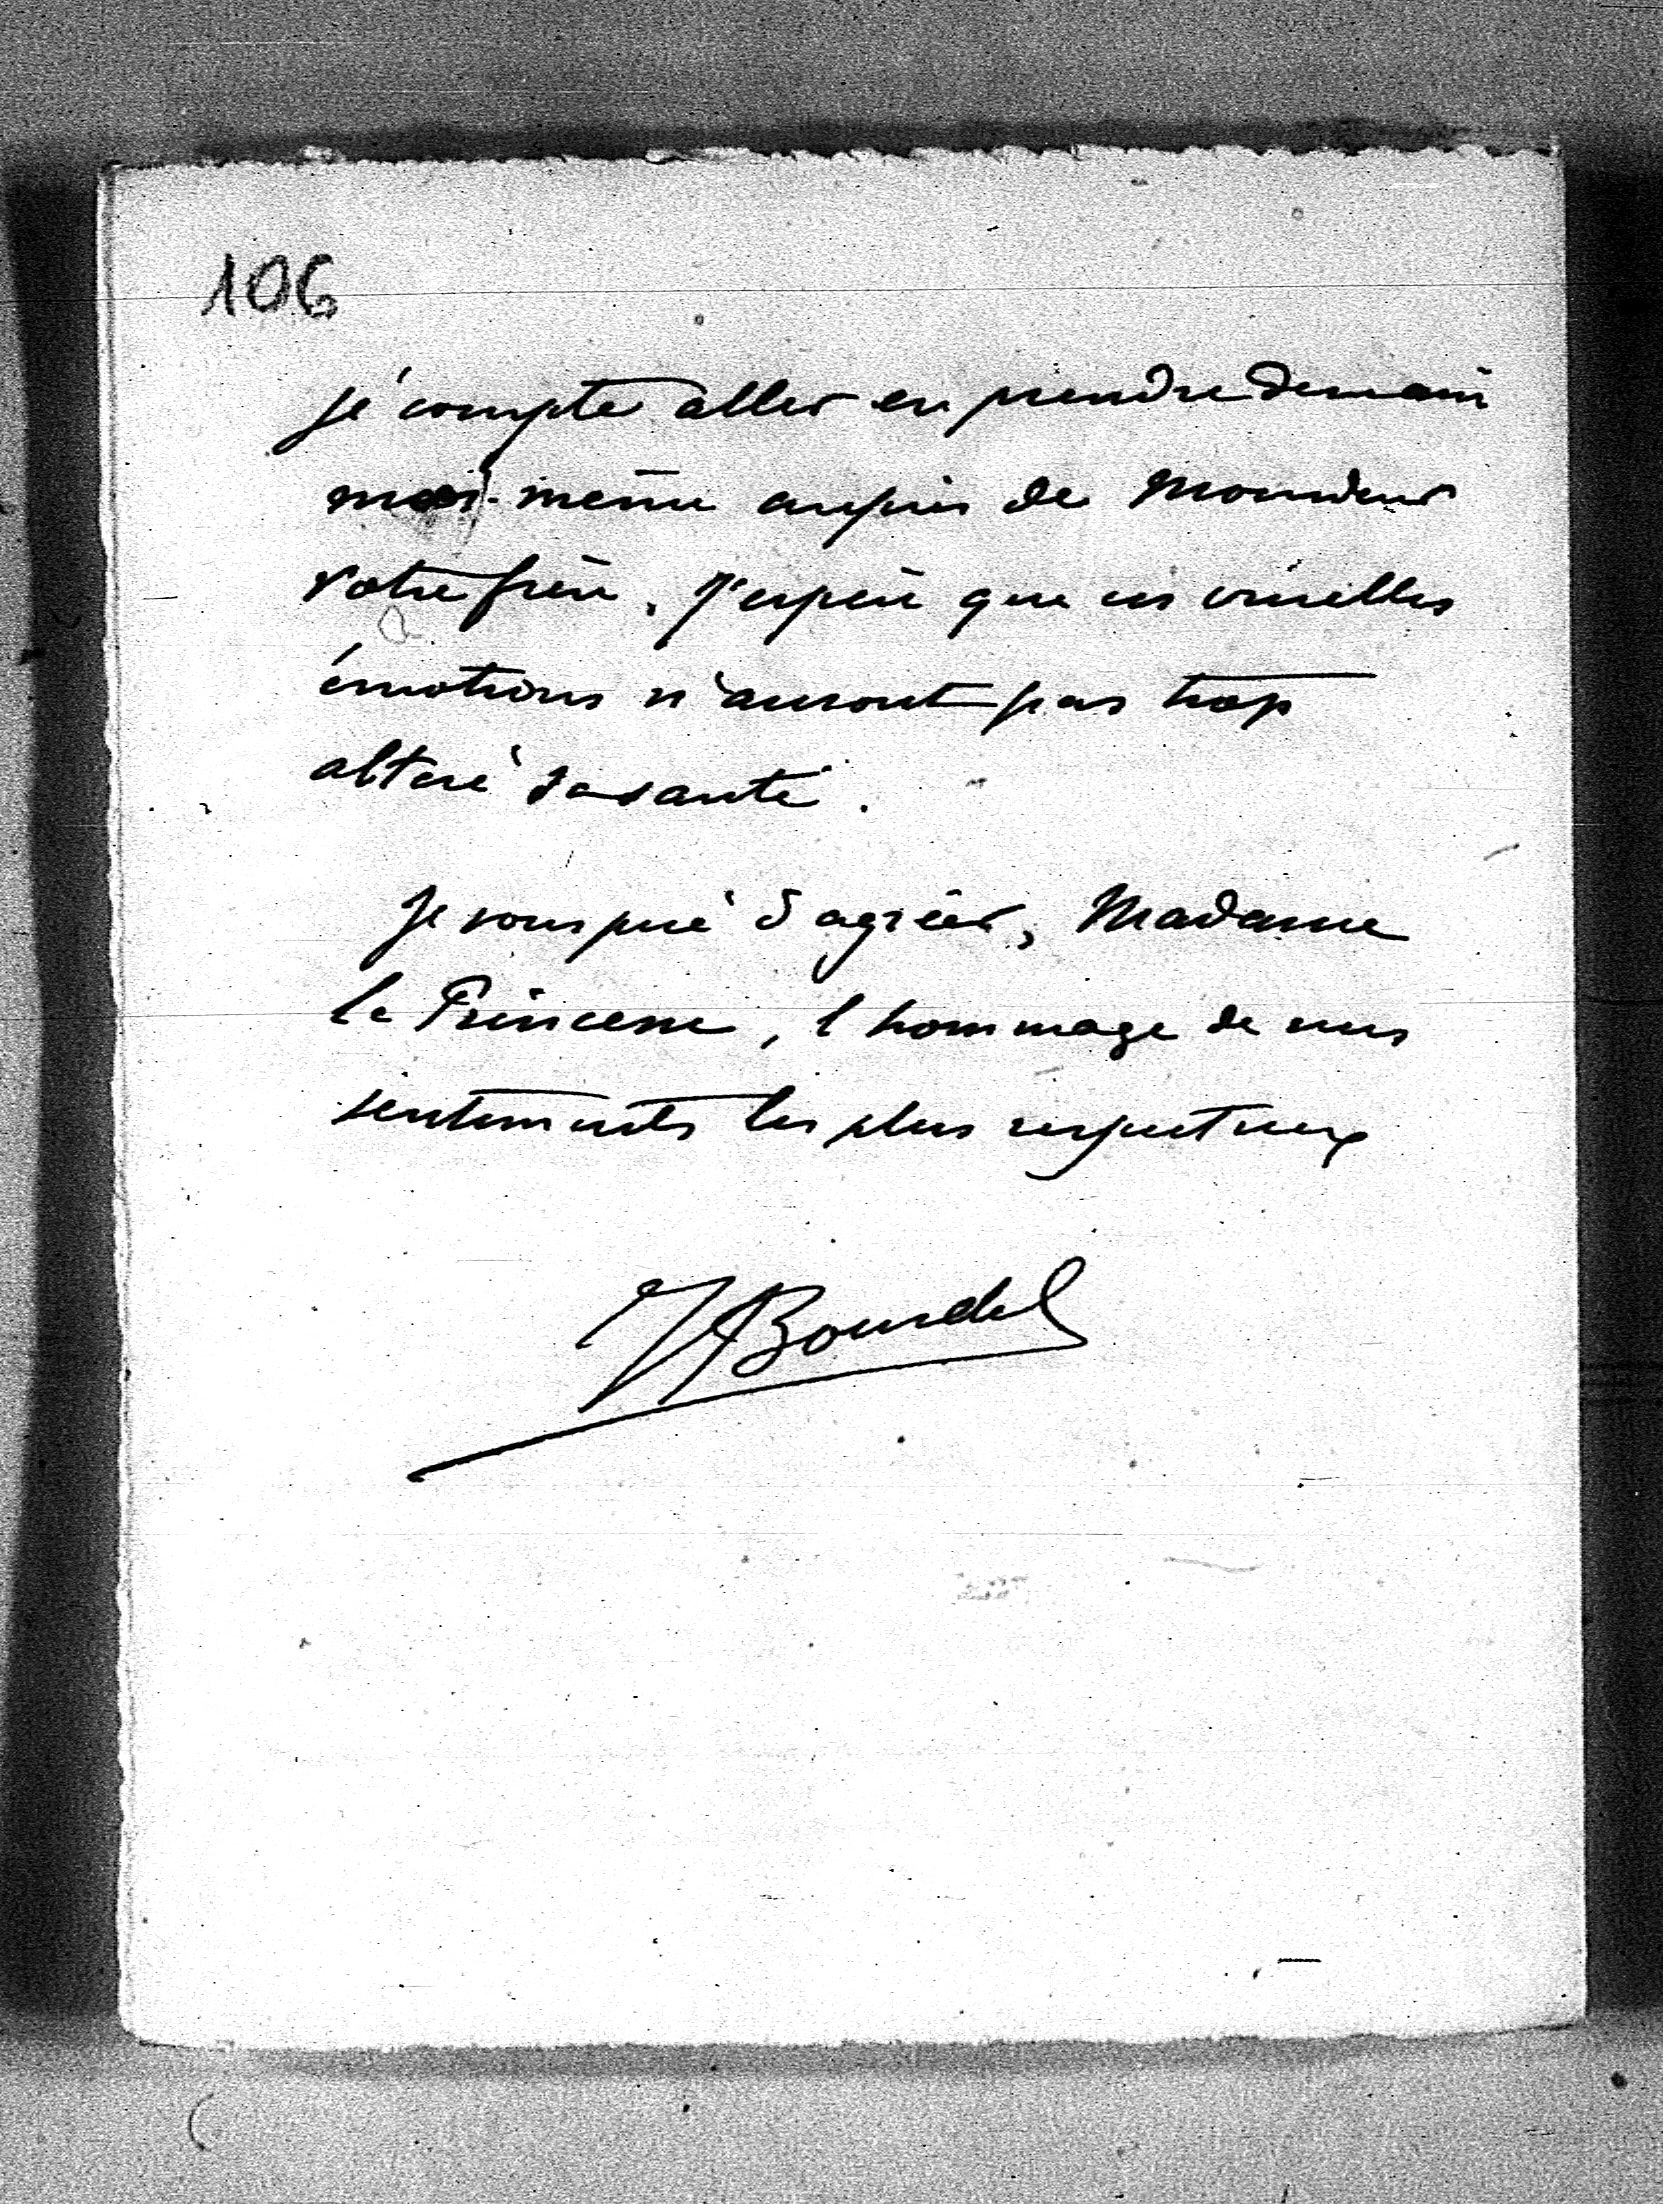 106
je compte aller en prendre demain
moi-même auprès de Monsieur
votre frère. J'espère que ces cruelles
émotions n'auront pas trop
altéré sa santé.
Je vous prie d'agréer, Madame
la Princesse, l'hommage de mes
sentiments les plus respectueux
Bourdel